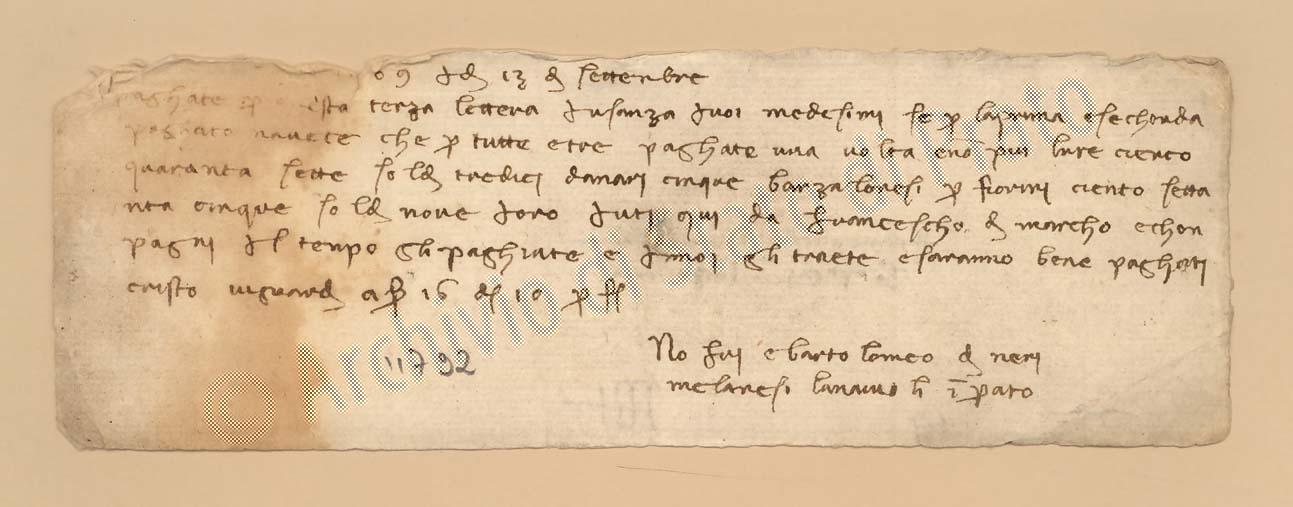 09 Jd 13 d settenbre
paghate p questa terza lettera Jusanza Jvoi medesimi se p laprima esechonda
paghato navete che p tutte etre paghate una volta eno piu lire ciento
quaranta sette sold tredici danari cinque barzalonesi p fiorini ciento setta
nta cinque sold nove Joro Juti qui da francescho d marcho echon
pagni Il tenpo gli paghiate e Jnnoi gli traete esaranno bene paghati
cristo viguardi a 16 d 10 p
No fri e bartolomeo d neri
melanesi lanaiuoli
11792
© Archivio di Stato di Prato